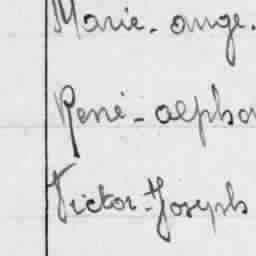 Marie-ange.
René-alphon
Victor-Joseph